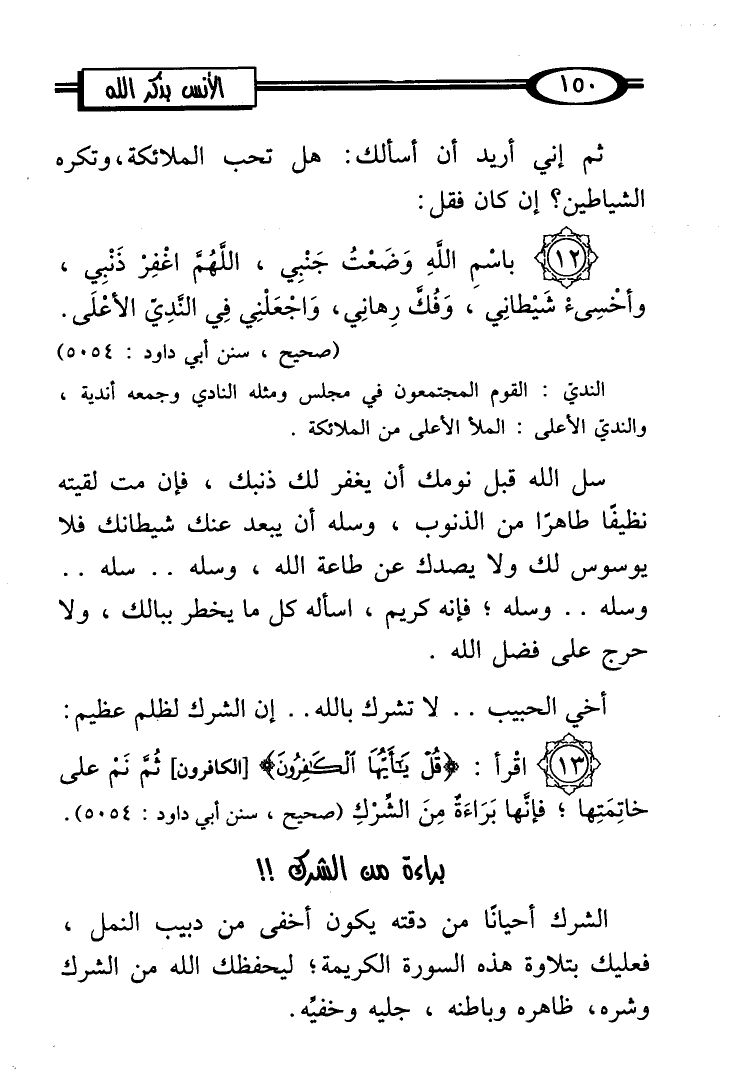 الأنس بذكر الله
١٥٠
ثم إني أريد أن أسألك: هل تحب الملائكة، وتكره
الشياطين؟ إن كان فقل:
١٢ باسْمِ اللَّهِ وَضَعْتُ جَنْبِي ، اللَّهُمَّ اغْفِرْ ذَنْبِي ،
وأخْسِىءْ شَيْطانِي ، وَفُكَّ رِهانِي، وَاجْعَلْنِي فِي النَّدِيّ الأعْلَى.
(صحيح ، سنن أبي داود : ٥٠٥٤)
النديّ : القوم المجتمعون في مجلس ومثله النادي وجمعه أندية ،
والنديّ الأعلى : الملأ الأعلى من الملائكة .
سل الله قبل نومك أن يغفر لك ذنبك ، فإن مت لقيته
نظيفًا طاهرًا من الذنوب ، وسله أن يبعد عنك شيطانك فلا
يوسوس لك ولا يصدك عن طاعة الله ، وسله .. سله ..
وسله .. وسله ؛ فإنه كريم ، اسأله كل ما يخطر ببالك ، ولا
حرج على فضل الله .
أخي الحبيب .. لا تشرك بالله.. إن الشرك لظلم عظيم:
١٣ اقْرأ : ﴿قُلْ يَٰٓأَيُّهَا ٱلْكَٰفِرُونَ﴾ [الكافرون] ثُمَّ نَمْ على
خاتِمَتِها ؛ فإنَّها بَرَاءَةٌ مِنَ الشِّرْكِ (صحيح ، سنن أبي داود : ٥٠٥٤).
براءة من الشرك !!
الشرك أحيانًا من دقته يكون أخفى من دبيب النمل ،
فعليك بتلاوة هذه السورة الكريمة؛ ليحفظك الله من الشرك
وشره، ظاهره وباطنه ، جليه وخفيِّه.